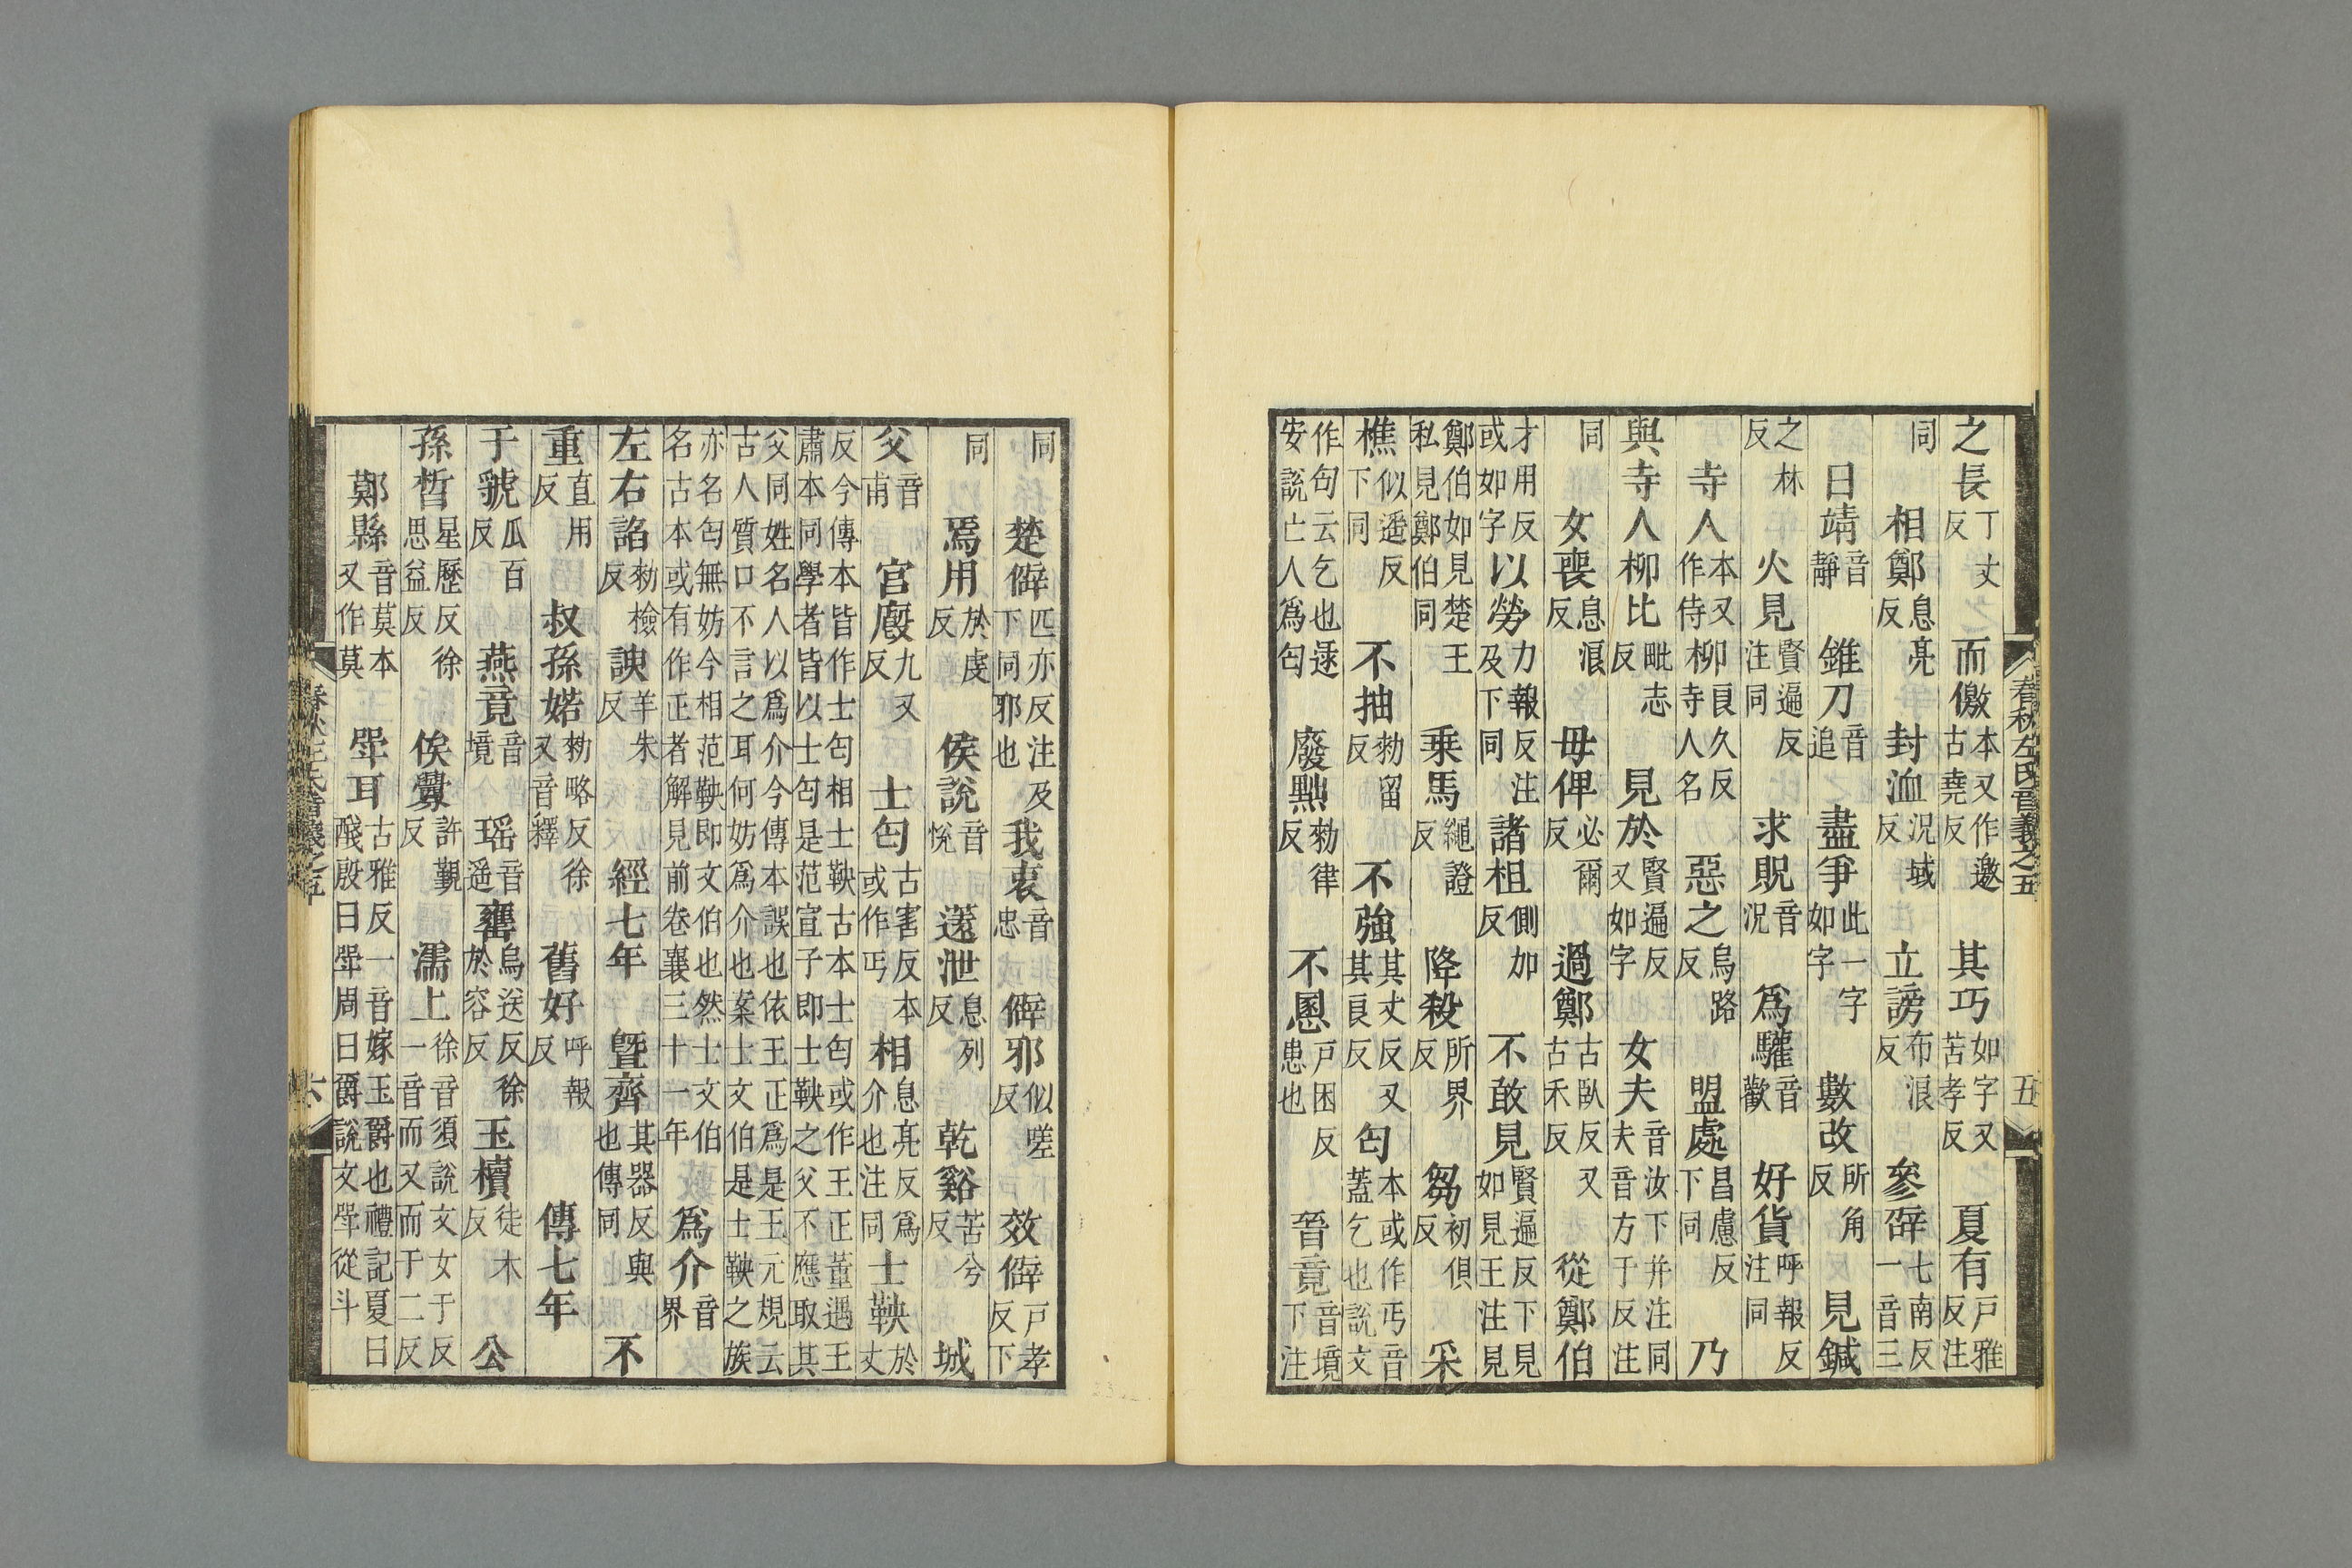 春秋左氏音義之五　五
之長丁丈反　而儌本又作邀古堯反　其巧如字又苦孝反　夏有戸雅反注
同　相鄭息亮反　封洫況域反　立謗布浪反　參辟七南反一音三
曰靖音靜　錐刀音追　盡爭此一字如字　數改所角反　見鍼
之林反　火見賢遍反注同　求貺音況　爲驩音歡　好貨呼報反注同
寺人本又作侍　柳良久反寺人名　惡之烏路反　盟處昌慮反下同　乃
與寺人柳比毗志反　見於賢遍反又如字　女夫音汝下并注同夫音方于反注
同　女喪息浪反　毋俾必爾反　過鄭古臥反又古禾反　從鄭伯
才用反或如字　以勞力報反注及下同　諸柤側加反　不敢見賢遍反下見如見王注見
鄭伯如見楚王私見鄭伯同　乗馬繩證反　降殺所界反　芻初俱反　采
樵似遥反下同　不抽勑留反　不強其丈反又其良反　匄本或作丐音蓋乞也說文
作匂云乞也逯安說亡人爲匄　廢黜勑律反　不慁戸困反患也　晉竟音境下注
同　楚僻匹亦反注及下同邪也　我衷音忠　僻邪似嗟反　效僻戸孝反下
同　焉用於虔反　侯說音悅　薳泄息列反　乾谿苦兮反　城
父音甫　官廏九又反　士匄古害反本或作丐　相息亮反爲介也注同　士鞅於丈
反今傳本皆作士匄相士鞅古本士匄或作王正董遇王肅本同學者皆以士匄是范宣子即士鞅之父不應取其
父同姓名人以爲介今傳本誤也依王正爲是王元規云古人質口不言之耳何妨爲介也案士文伯是士鞅之族
亦名匄無妨今相范鞅即文伯也然士文伯名古本或有作正者解見前卷襄三十一年　爲介音界
左右諂勑檢反　諛羊朱反　經七年　曁齊其器反與也傳同　不
重直用反　叔孫婼勑略反徐又音釋　舊好呼報反　傳七年
于虢瓜百反　燕竟音境　瑶音遥　罋烏送反徐於容反　玉櫝徒木反　公
孫晳星歷反徐思益反　俟釁許覲反　濡上徐音須說文女于反一音而又而于二反
鄚縣音莫本又作莫　斝耳古雅反一音嫁玉爵也禮記夏曰醆殷曰斝周曰爵說文斝從斗
春秋左氏音義之五　六